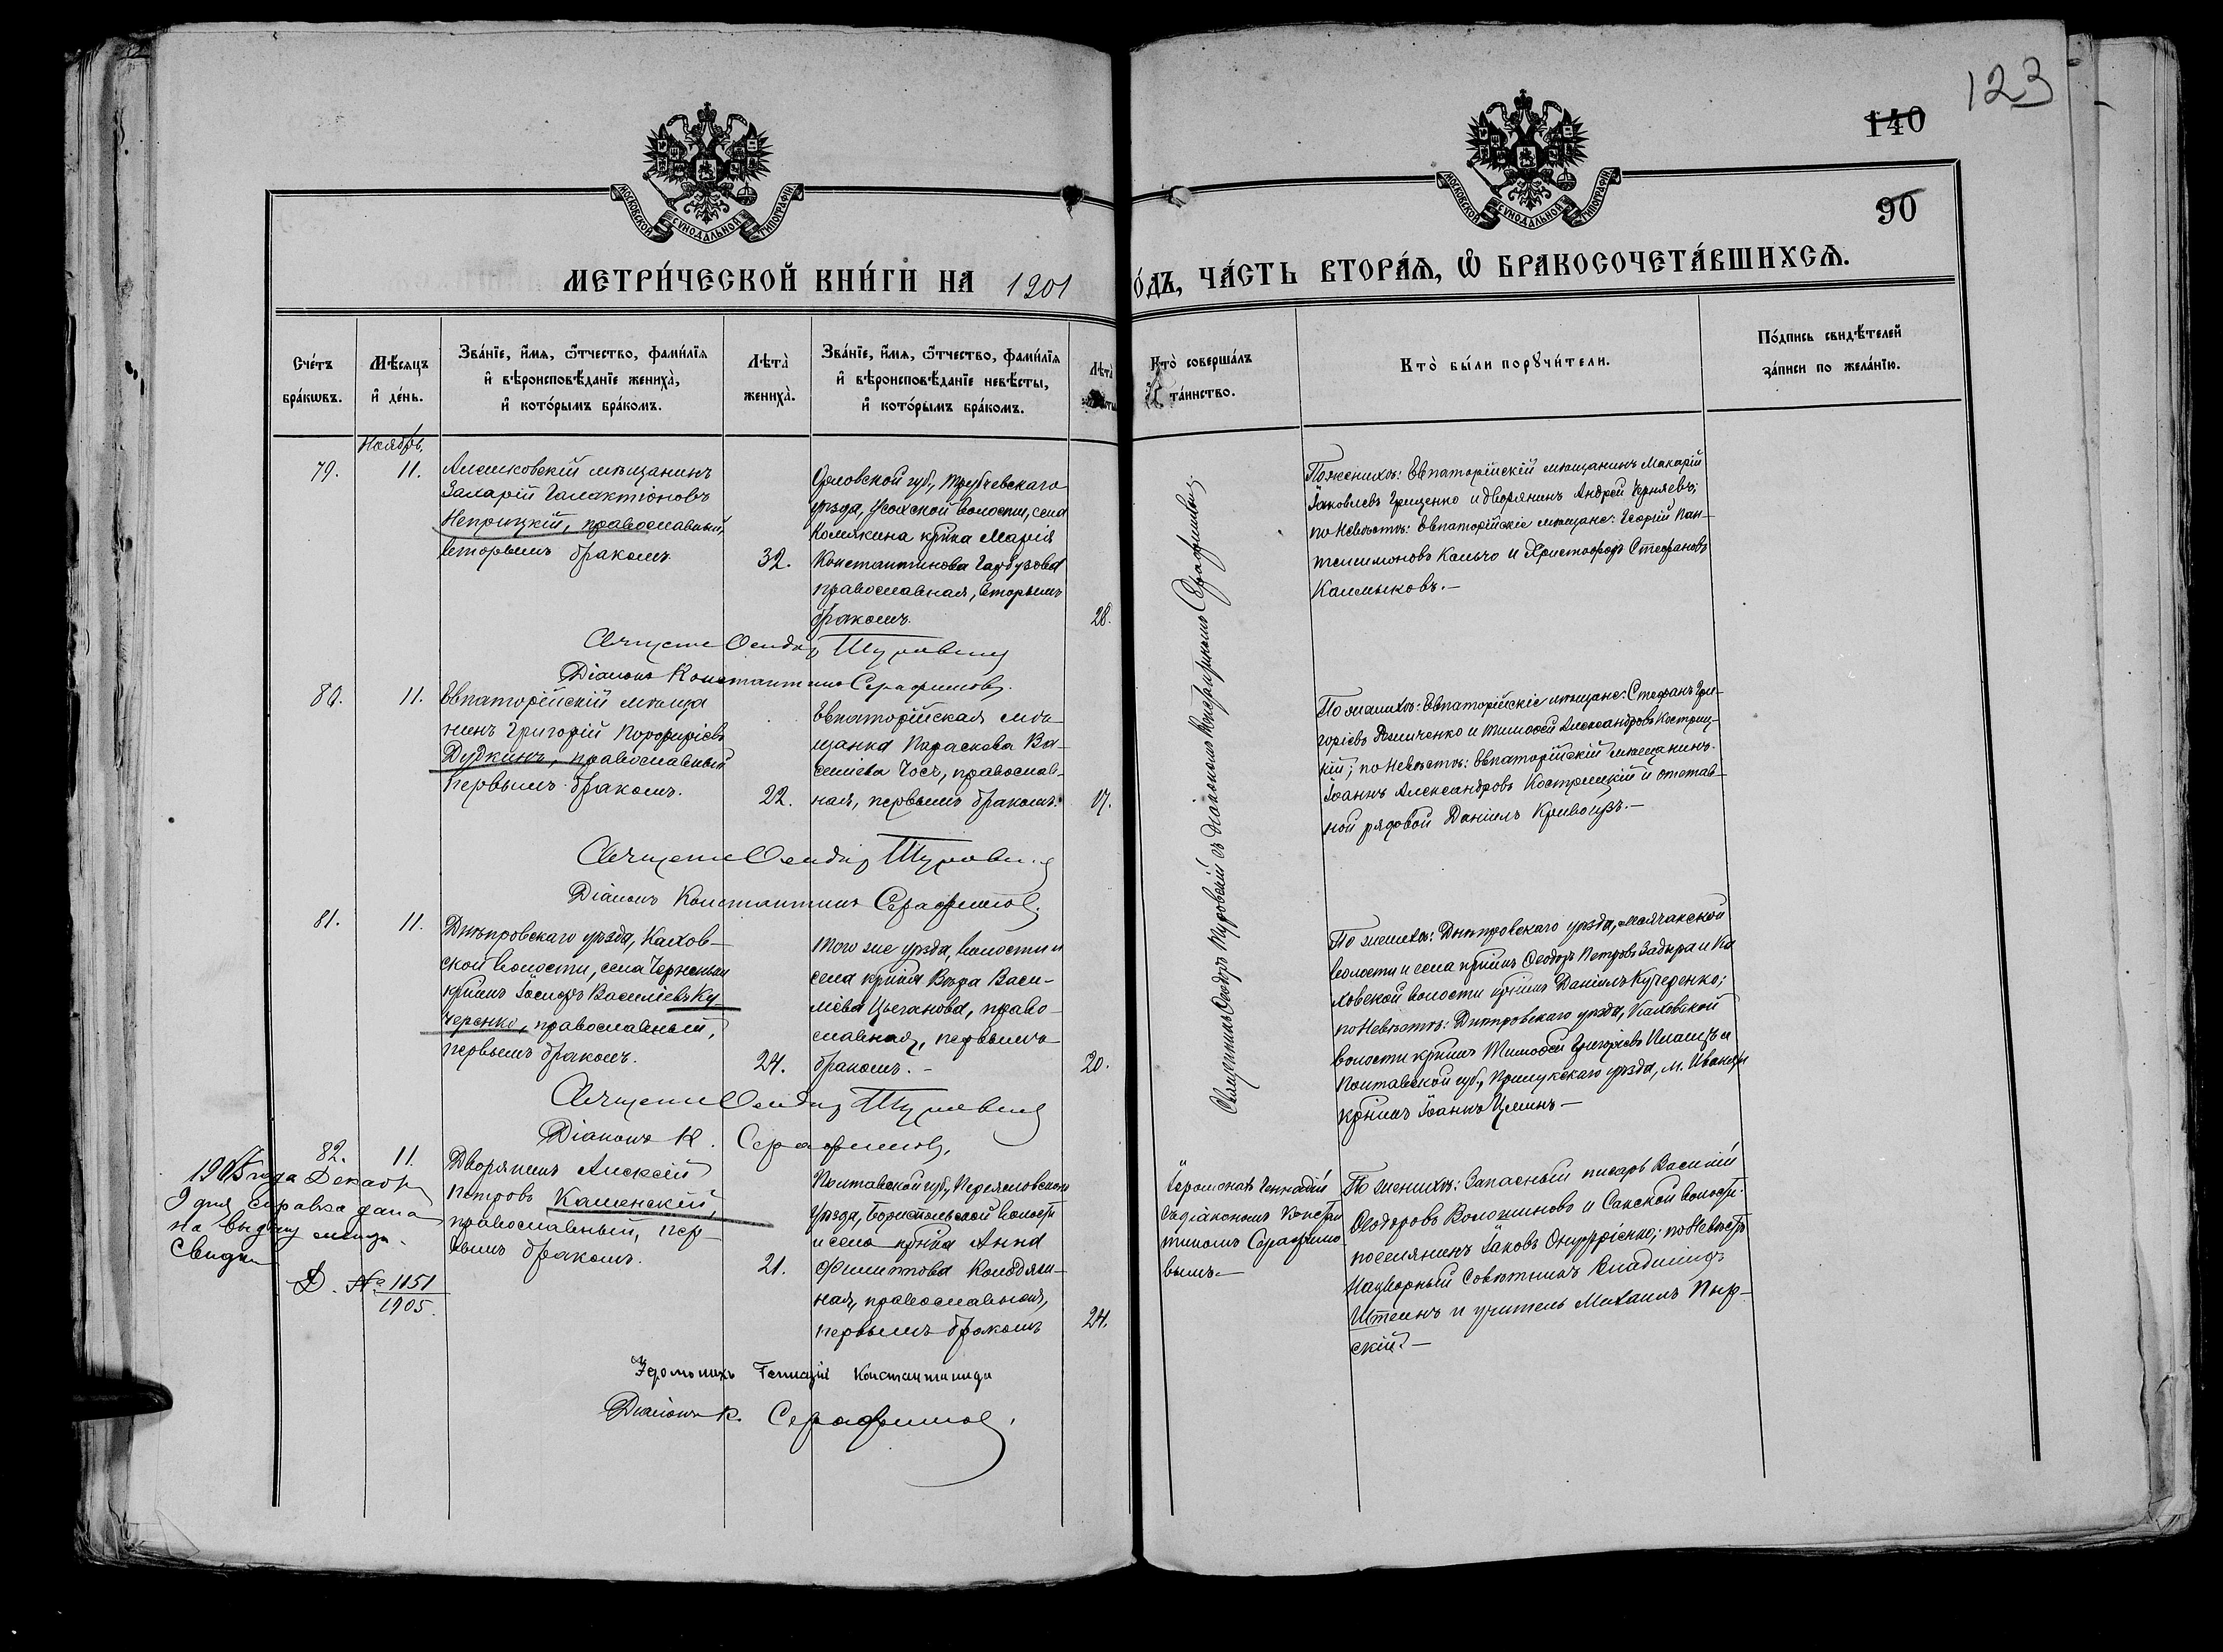 123
140
90
МОСКОВСКОЙ СѴНОДАЛЬНОЙ ТИПОГРАФІИ
МОСКОВСКОЙ СѴНОДАЛЬНОЙ ТИПОГРАФІИ
МЕТРИ́ЧЕСКОЙ КНИ́ГИ НА 1901
О́ДЪ, ЧА́СТЬ ВТОРА́Ѧ, Ѽ БРАКОСОЧЕТА́ВШИХСѦ.
Сче́тъ бра́кѡвъ.
Мѣ́сяцъ и҆ де́нь.
Зва́нїе, и҆́мѧ, ѻ҆́тчество, фами́лїѧ
и҆ вѣроисповѣ́данїе жениха̀,
и҆ кото́рымъ бра́комъ.
Лѣта̀ жениха̀.
Зва́нїе, и҆́мѧ, ѻ҆́тчество, фами́лїѧ
и҆ вѣроисповѣ́данїе невѣ́сты,
и҆ кото́рымъ бра́комъ.
Лѣта̀
Кто̀ соверша́лъ
та́инство.
Кто̀ бы́ли порꙋчи́тели.
По́дпись свидѣ́телей
за́писи по жела́нїю.
Ноябрь.
79.
11.
Алешковскій мѣщанинъ
Захарій Галактіоновъ
Неприцкій, православный,
вторымъ бракомъ.
32.
Орловской губ., Трубчевскаго
уѣзда, Усохской волости, села
Комякина кр̃нка Марія
Константинова Гарбузова
православная, вторымъ
бракомъ.
28.
По женихѣ: Евпаторійскій мѣщанинъ Макарій
Іаковлевъ Грищенко и дворянинъ Андрей Черняевъ;
по невѣстѣ: Евпаторійскіе мѣщане: Георгій Пан-
телимоновъ Кальчо и Христофоръ Стефановъ
Калмыковъ.—
Діаконъ Константинъ Серафимовъ.
80.
11.
Евпаторійскій мѣща
нинъ Григорій Порфиріевъ
Дудкинъ, православный
первымъ бракомъ.
22.
Евпаторійская мѣ-
щанка Параскева Ва-
силіева Гось, православ-
ная, первымъ бракомъ.
17.
По женихѣ: Евпаторійскіе мѣщане: Стефанъ Гри-
горіевъ и Тимофей Александровъ Костриц-
кій; по невѣстѣ: Евпаторійскій мѣщанинъ
Іоаннъ Александровъ Кострицкій и отстав-
ной рядовой Даніилъ
Діаконъ Константинъ Серафимовъ.
81.
11.
Днѣпровскаго уѣзда, Кахов-
ской волости, села Черненьки
кр̃нинъ Іосифъ Василіевъ Ку-
черенко, православный,
первымъ бракомъ.
24.
Того же уѣзда, волости и
села кр̃нка Вѣра Васи-
ліева Цыганова, право-
славная, первымъ
бракомъ.-
20.
По женихѣ: Днѣпровскаго уѣзда, Маячкской
волости и села кр̃нинъ Ѳеодоръ Петровъ Задыра и Ка
ховской волости кр̃нинъ Даніилъ Кучеренко;
по невѣстѣ: Днѣпровскаго уѣзда, Каховской
волости кр̃нинъ Тимофей Григоріевъ и
Полтавской губ., Прилукскаго уѣзда, м. Иваницы
кр̃нинъ Іоаннъ
Священникъ Ѳеодоръ Туровскій съ діакономъ Константиномъ Серафимовымъ
Діаконъ К. Серафимовъ.
82.
11.
Дворянинъ Алексій
Петровъ Каменскій,
православный, пер-
вымъ бракомъ.
21.
Полтавской губ., Переяславскаго
уѣзда, Бориспольской волости
и села кр̃нка Анна
Филиппова Колодяж-
ная, православная,
первымъ бракомъ
24.
Іеромонахъ Геннадій
съ діакономъ Констан
тиномъ Серафимо
вымъ.—
По женихѣ: Запасный писарь Василій
Ѳеодоровъ Волошиновъ и Сакской волости
поселянинъ Іаковъ Онуфріенко; по невѣстѣ
Надворный Совѣтникъ Владиміръ
Штеинъ и учитель Михаилъ Пыр-
скій.—
1905 года Декабря
9 дня справка дана
на выдачу
Д. № 1151
1905.
Іеромонахъ Геннадій Константиниди
Діаконъ К. Серафимовъ.